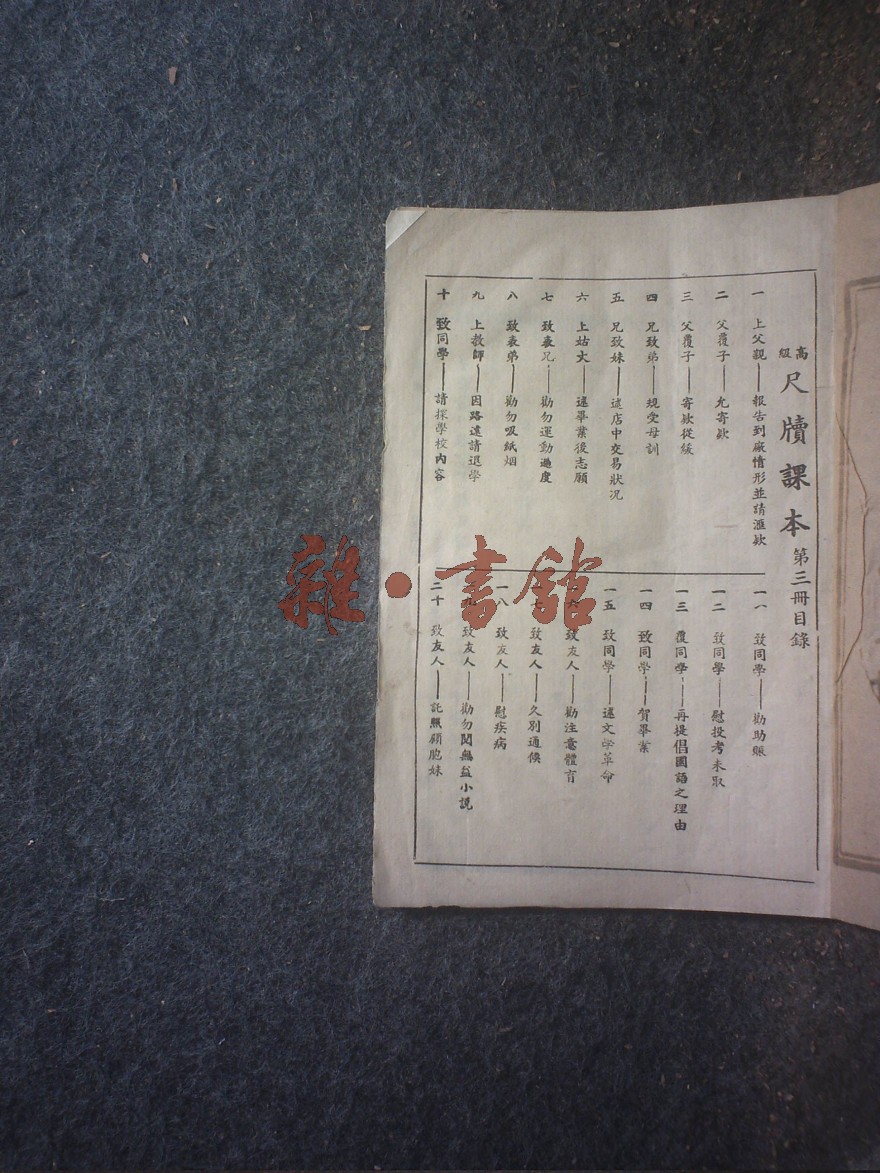 高級 尺牘課本 第三冊目錄
一 上父親——報告到廠情形並請滙欵
二 父覆子——允寄欵
三 父覆子——寄欵從緩
四 兄致弟——規受母訓
五 兄致妹——述店中交易狀况
六 上姑丈——述畢業後志願
七 致表兄——勸勿運動過度
八 致表弟——勸勿吸紙烟
九 上教師——因路遠請退學
十 致同學——請探學校內容
一一 致同學——勸助賑
一二 致同學——慰投考未取
一三 覆同學——再提倡國語之理由
一四 致同學——賀畢業
一五 致同學——述文學革命
一六 致友人——勸注意體育
一七 致友人——久別通候
一八 致友人——慰疾病
一九 致友人——勸勿閱無益小說
二十 致友人——託照顧胞妹
雜·書館